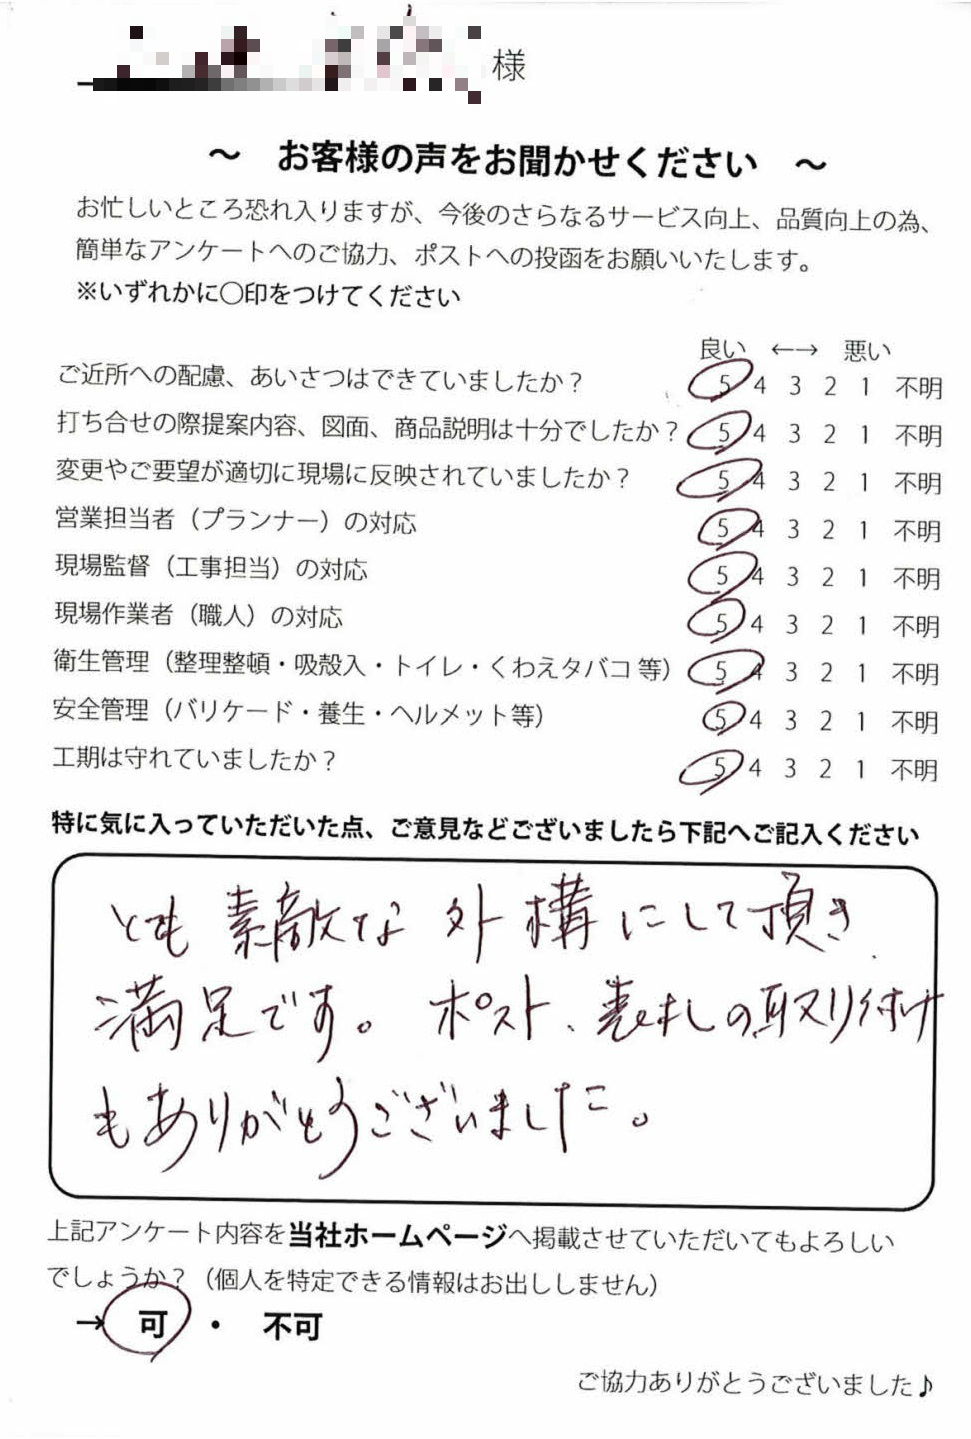 様
～ お客様の声をお聞かせください ～
お忙しいところ恐れ入りますが、今後のさらなるサービス向上、品質向上の為、
簡単なアンケートへのご協力、ポストへの投函をお願いいたします。
※いずれかに〇印をつけてください
良い ←→ 悪い
ご近所への配慮、あいさつはできていましたか？ 5 4 3 2 1 不明
打ち合せの際提案内容、図面、商品説明は十分でしたか？ 5 4 3 2 1 不明
変更やご要望が適切に現場に反映されていましたか？ 5 4 3 2 1 不明
営業担当者（プランナー）の対応 5 4 3 2 1 不明
現場監督（工事担当）の対応 5 4 3 2 1 不明
現場作業者（職人）の対応 5 4 3 2 1 不明
衛生管理（整理整頓・吸殻入・トイレ・くわえタバコ 等） 5 4 3 2 1 不明
安全管理（バリケード・養生・ヘルメット等） 5 4 3 2 1 不明
工期は守れていましたか？ 5 4 3 2 1 不明
特に気に入っていただいた点、ご意見などございましたら下記へご記入ください
とても 素敵な 外構 にして頂き
満足です。 ポスト、表札の取り付け
もありがとうございました。
上記アンケート内容を当社ホームページへ掲載させていただいてもよろしい
でしょうか？（個人を特定できる情報はお出ししません）
→ 可 ・ 不可
ご協力ありがとうございました♪